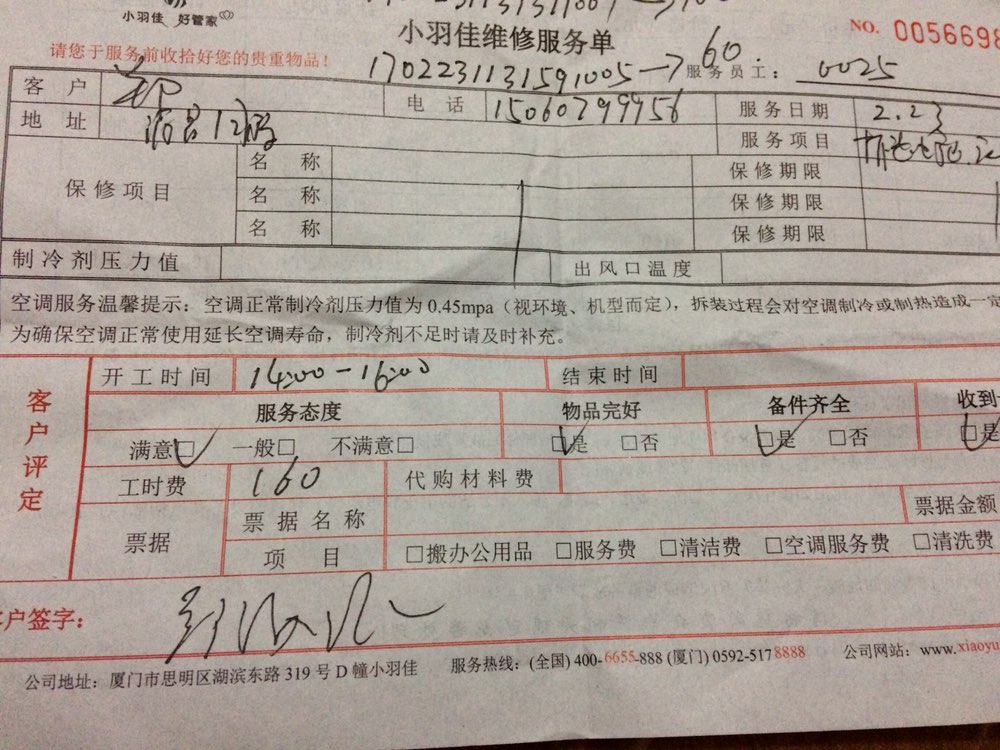 小羽佳 好管家
小羽佳维修服务单
NO. 0056698
请您于服务前收拾好您的贵重物品！
1702231131591005→ 60
服务员工： 0025
客 户 郑 电 话 15060799956 服务日期 2.23
地 址 12 服务项目
保修项目 名 称 保修期限
名 称 保修期限
名 称 保修期限
制冷剂压力值 出风口温度
空调服务温馨提示：空调正常制冷剂压力值为 0.45mpa（视环境、机型而定），拆装过程会对空调制冷或制热造成一定
为确保空调正常使用延长空调寿命，制冷剂不足时请及时补充。
客户评定
开工时间 14:00-16:00 结束时间
服务态度 物品完好 备件齐全 收到
满意□ 一般□ 不满意□ □是 □否 □是 □否 □是
工时费 160 代购材料费
票据 票据名称 票据金额
项 目 □搬办公用品 □服务费 □清洁费 □空调服务费 □清洗费
客户签字：
公司地址：厦门市思明区湖滨东路 319 号 D 幢小羽佳 服务热线：(全国) 400-6655-888 (厦门) 0592-5178888 公司网站：www.xiaoyu